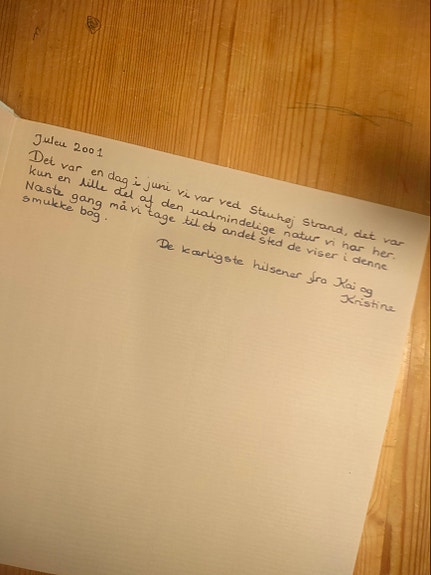 Julen 2001
Det var en dag i juni vi var ved Stenhøj Strand, det var
kun en lille del af den ualmindelige natur vi har her.
Næste gang må vi tage til eb andet sted de viser i denne
smukke bog.
De kærligste hilsener fra Kai og
Kristine